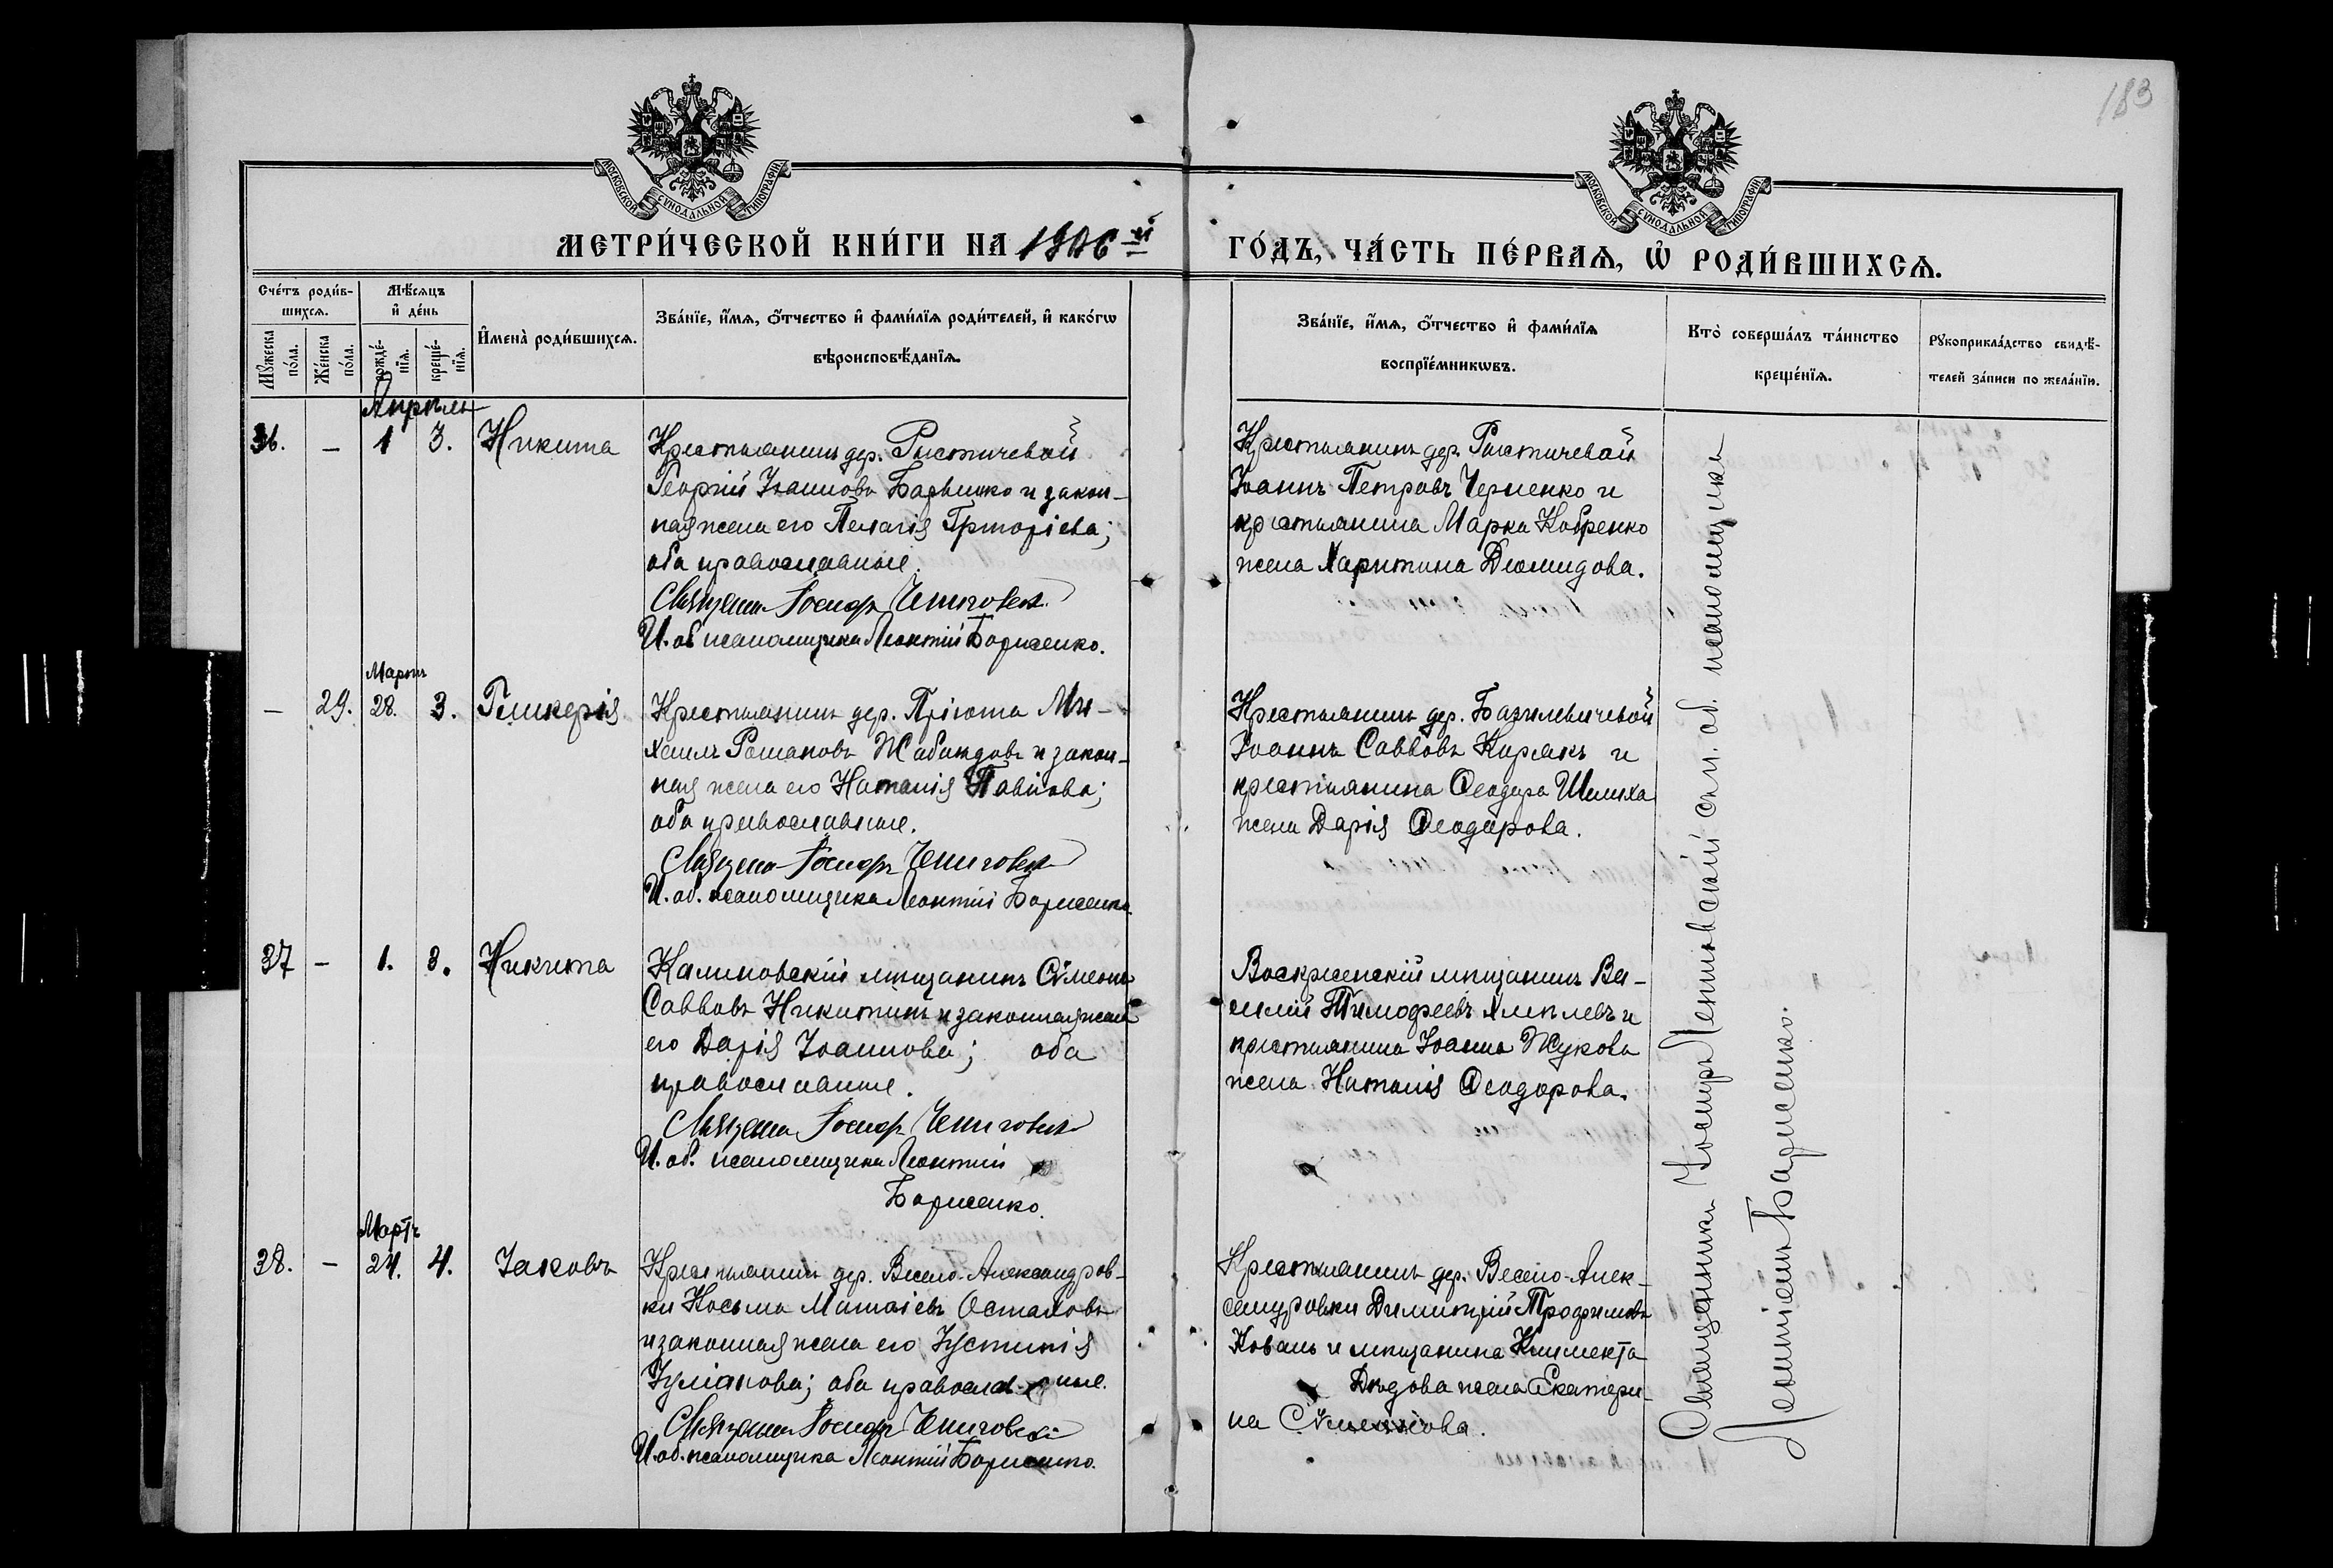 183
МОСКОВСКОЙ СѴНОДАЛЬНОЙ ТИПОГРАФІИ
МОСКОВСКОЙ СѴНОДАЛЬНОЙ ТИПОГРАФІИ
МЕТРИ́ЧЕСКОЙ КНИ́ГИ НА 1906-й ГО́ДЪ, ЧА́СТЬ ПЕ́РВАѦ, Ѡ҆ РОДИ́ВШИХСѦ.
Сче́тъ роди́в-
шихсѧ.
Мꙋжеска по́ла.
Же́нска по́ла.
Мѣ́сѧцъ
и҆ де́нь
рожде́-
нїѧ.
креще́-
нїѧ.
И҆мена̀ роди́вшихсѧ.
Зва́нїе, и҆́мѧ, ѻ҆́тчество и҆ фами́лїѧ роди́телей, и҆ како́гѡ
вѣроисповѣ́данїѧ.
Зва́нїе, и҆́мѧ, ѻ҆́тчество и҆ фами́лїѧ
воспрїе́мникѡвъ.
Кто̀ соверша́лъ та́инство
креще́нїѧ.
Рꙋкоприкла́дство свидѣ́-
телей за́писи по жела́нїю.
Апрѣль
36. – 1 3. Никита
Крестьянинъ дер. Ристичевой
Георгій Іоанновъ и закон-
ная жена его Пелагія Григоріева;
оба православные.
Священ. Іосифъ
И. об. псаломщика Леонтій Борисенко.
Крестьянинъ дер. Ристичевой
Іоаннъ Петровъ Черненко и
крестьянина Марка Кобренко
жена Харитина Діомидова.
Мартъ
– 29. 28. 3. Гликерія
Крестьянинъ дер. Пріюта Ми-
хаилъ Романовъ и закон-
ная жена его Наталія Павлова;
оба православные.
Священ. Іосифъ
И. об. псаломщика Леонтій Борисенко
Крестьянинъ дер. Базилевичевой
Іоаннъ Саввовъ и
крестьянина Ѳеодора
жена Дарія Ѳеодорова.
37 – 1. 3. Никита
Калиновскій мѣщанинъ Сѵмеонъ
Саввовъ Никитинъ и законная жена
его Дарія Іоаннова; оба
православные.
Священ. Іосифъ
И. об. псаломщика Леонтій
Борисенко.
Воскресенскій мѣщанинъ Ва-
силій Тимофеевъ Хмѣлевъ и
крестьянина Іоанна Жукова
жена Наталія Ѳеодорова.
Мартъ
38. – 24. 4. Іаковъ
Крестьянинъ дер. Весело-Александров-
ки Косьма Матѳіевъ Осталовъ
и законная жена его Іустинія
Іуліанова; оба православные.
Священ. Іосифъ
И. об. псаломщика Леонтій Борисенко.
Крестьянинъ дер. Весело-Алек-
сандровки Димитрій Трофимовъ
Коваль и мѣщанина
Дѣдова жена Екатери-
на Сѵмеонова.
Священникъ Іосифъ и и. об. псаломщика
Леонтій Борисенко.